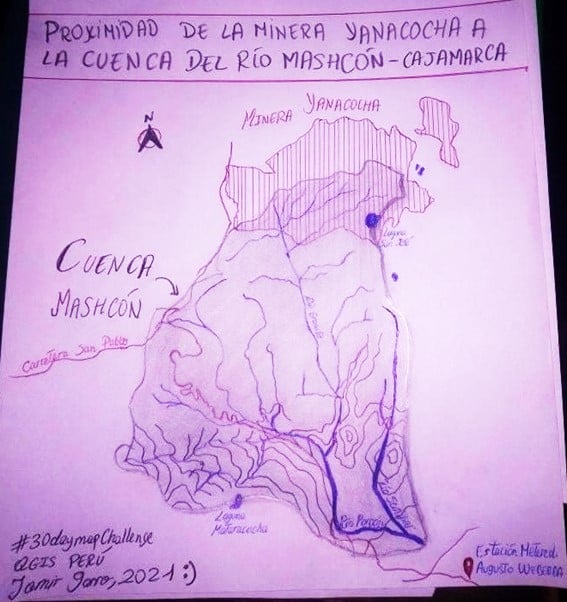 PROXIMIDAD DE LA MINERA YANACOCHA A
LA CUENCA DEL RÍO MASHCÓN-CAJAMARCA
N
MINERA YANACOCHA
Laguna
San José
CUENCA
MASHCÓN
Río Grande
Carretera San Pablo
Laguna
Mataracocha
Río Porcón
#30daymapChallenge
QGIS PERÚ
2021:)
Estación Metered.
Augusto